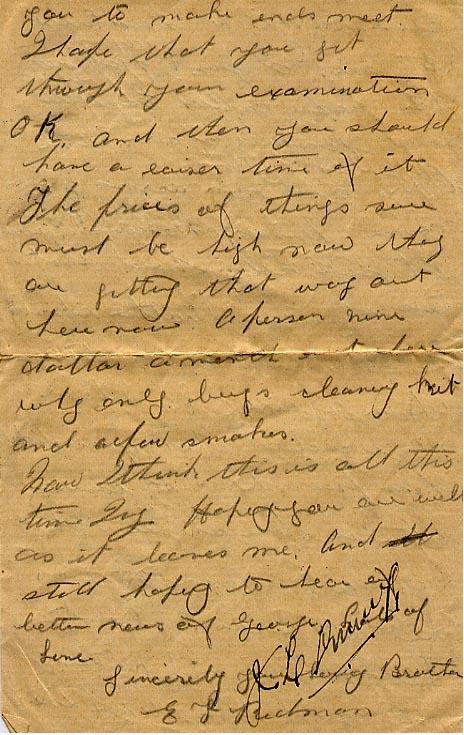 you to make ends meet.
I hope that you get
through your examination
OK, and then you should
have a easier time of it
The prices of things sure
must be high now they
are getting that way out
here now. A person nine
dollar a month out here
only buys cleaning kit
and a few smokes.
Now I think this is all this
time Hoping you are well
as it leaves me. And
still hoping to hear of
better news of George. of
love.
Sincerely your loving Brother